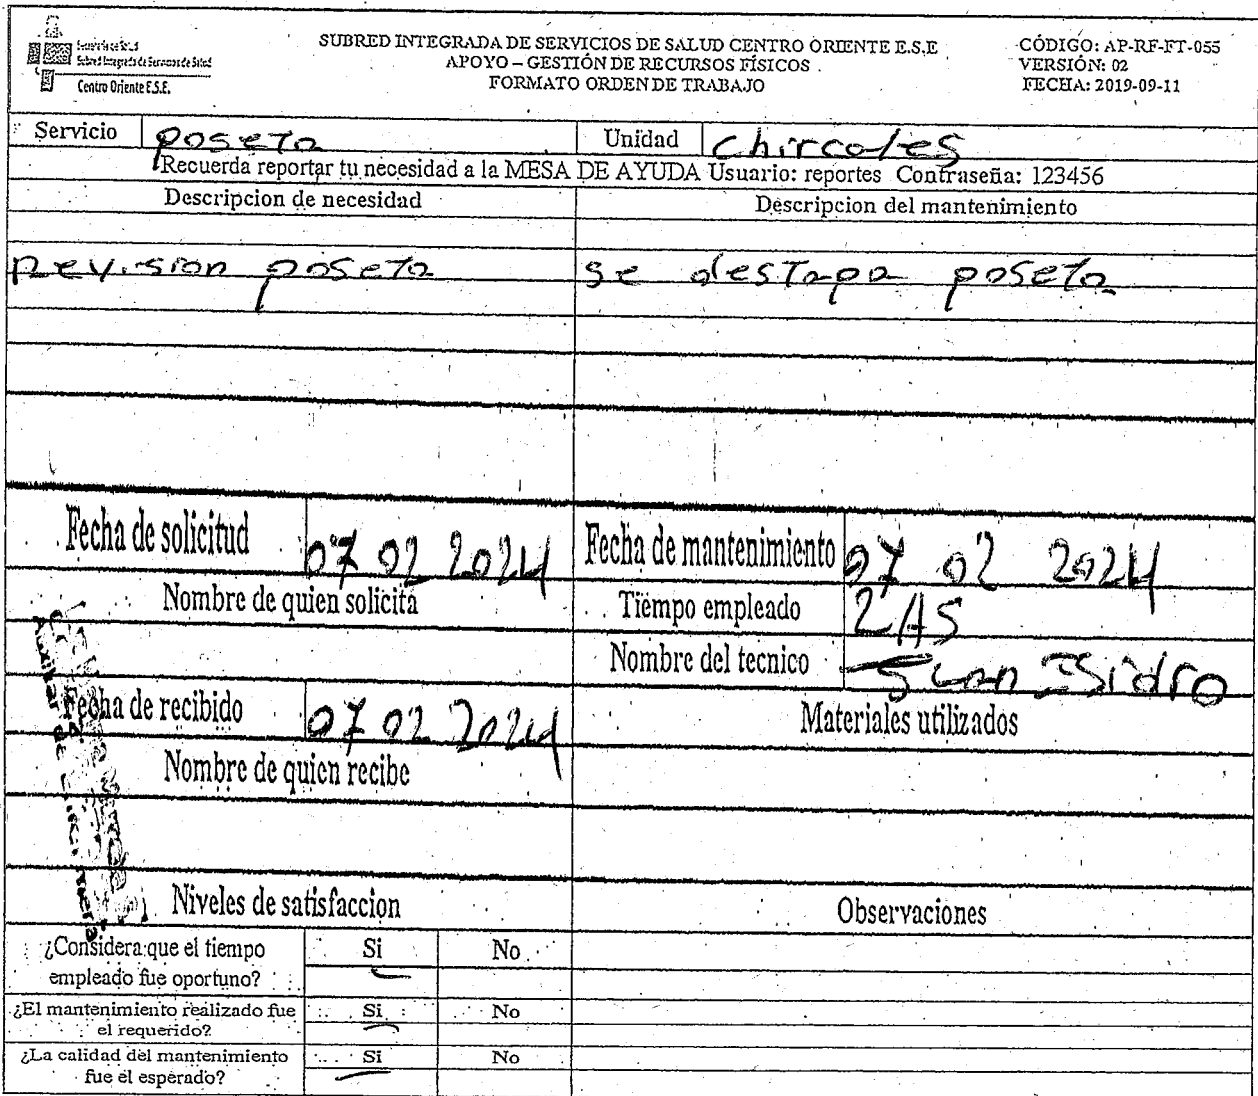 Secretaría de Salud
Subred Integrada de Servicios de Salud
Centro Oriente E.S.E.
SUBRED INTEGRADA DE SERVICIOS DE SALUD CENTRO ORIENTE E.S.E
APOYO – GESTIÓN DE RECURSOS FÍSICOS
FORMATO ORDEN DE TRABAJO
CÓDIGO: AP-RF-FT-055
VERSIÓN: 02
FECHA: 2019-09-11
Servicio poseta Unidad chircales
Recuerda reportar tu necesidad a la MESA DE AYUDA Usuario: reportes Contraseña: 123456
Descripcion de necesidad Descripcion del mantenimiento
revision poseta se destapa poseta
Fecha de solicitud 07 02 2024 Fecha de mantenimiento 07 02 2024
Nombre de quien solicita Tiempo empleado 2HS
Nombre del tecnico Juan Isidro
Fecha de recibido 07 02 2024 Materiales utilizados
Nombre de quien recibe
Auxiliar de
Niveles de satisfaccion Observaciones
¿Considera que el tiempo empleado fue oportuno? Si No
¿El mantenimiento realizado fue el requerido? Si No
¿La calidad del mantenimiento fue el esperado? Si No